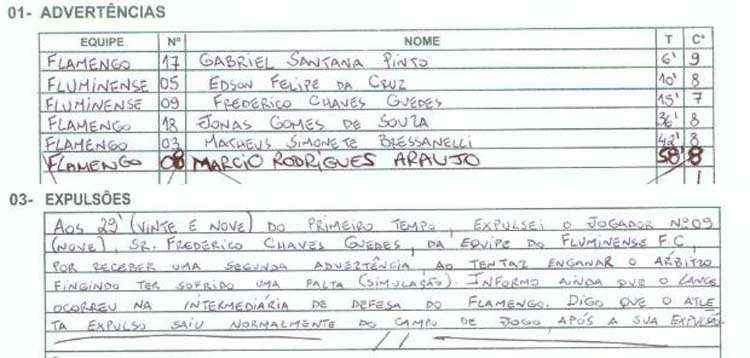 01- ADVERTÊNCIAS
EQUIPE Nº NOME T Cº
FLAMENGO 17 GABRIEL SANTANA PINTO 6' 9
FLUMINENSE 05 EDSON FELIPE DA CRUZ 10' 8
FLUMINENSE 09 FREDERICO CHAVES GUEDES 15' 7
FLAMENGO 18 JONAS GOMES DE SOUZA 36' 8
FLAMENGO 03 MATHEUS SIMONETE BRESSANELLI 42' 8
FLAMENGO 08 MARCIO RODRIGUES ARAUJO 58' 8
03- EXPULSÕES
AOS 29' (VINTE E NOVE) DO PRIMEIRO TEMPO, EXPULSEI O JOGADOR Nº09
(NOVE), SR. FREDERICO CHAVES GUEDES, DA EQUIPE DO FLUMINENSE F.C,
POR RECEBER UMA SEGUNDA ADVERTÊNCIA AO TENTAR ENGANAR O ÁRBITRO
FINGINDO TER SOFRIDO UMA FALTA (SIMULAÇÃO). INFORMO AINDA QUE O LANCE
OCORREU NA INTERMEDIÁRIA DE DEFESA DO FLAMENGO. DIGO QUE O ATLE
TA EXPULSO SAIU NORMALMENTE DO CAMPO DE JOGO APÓS A SUA EXPULSÃO